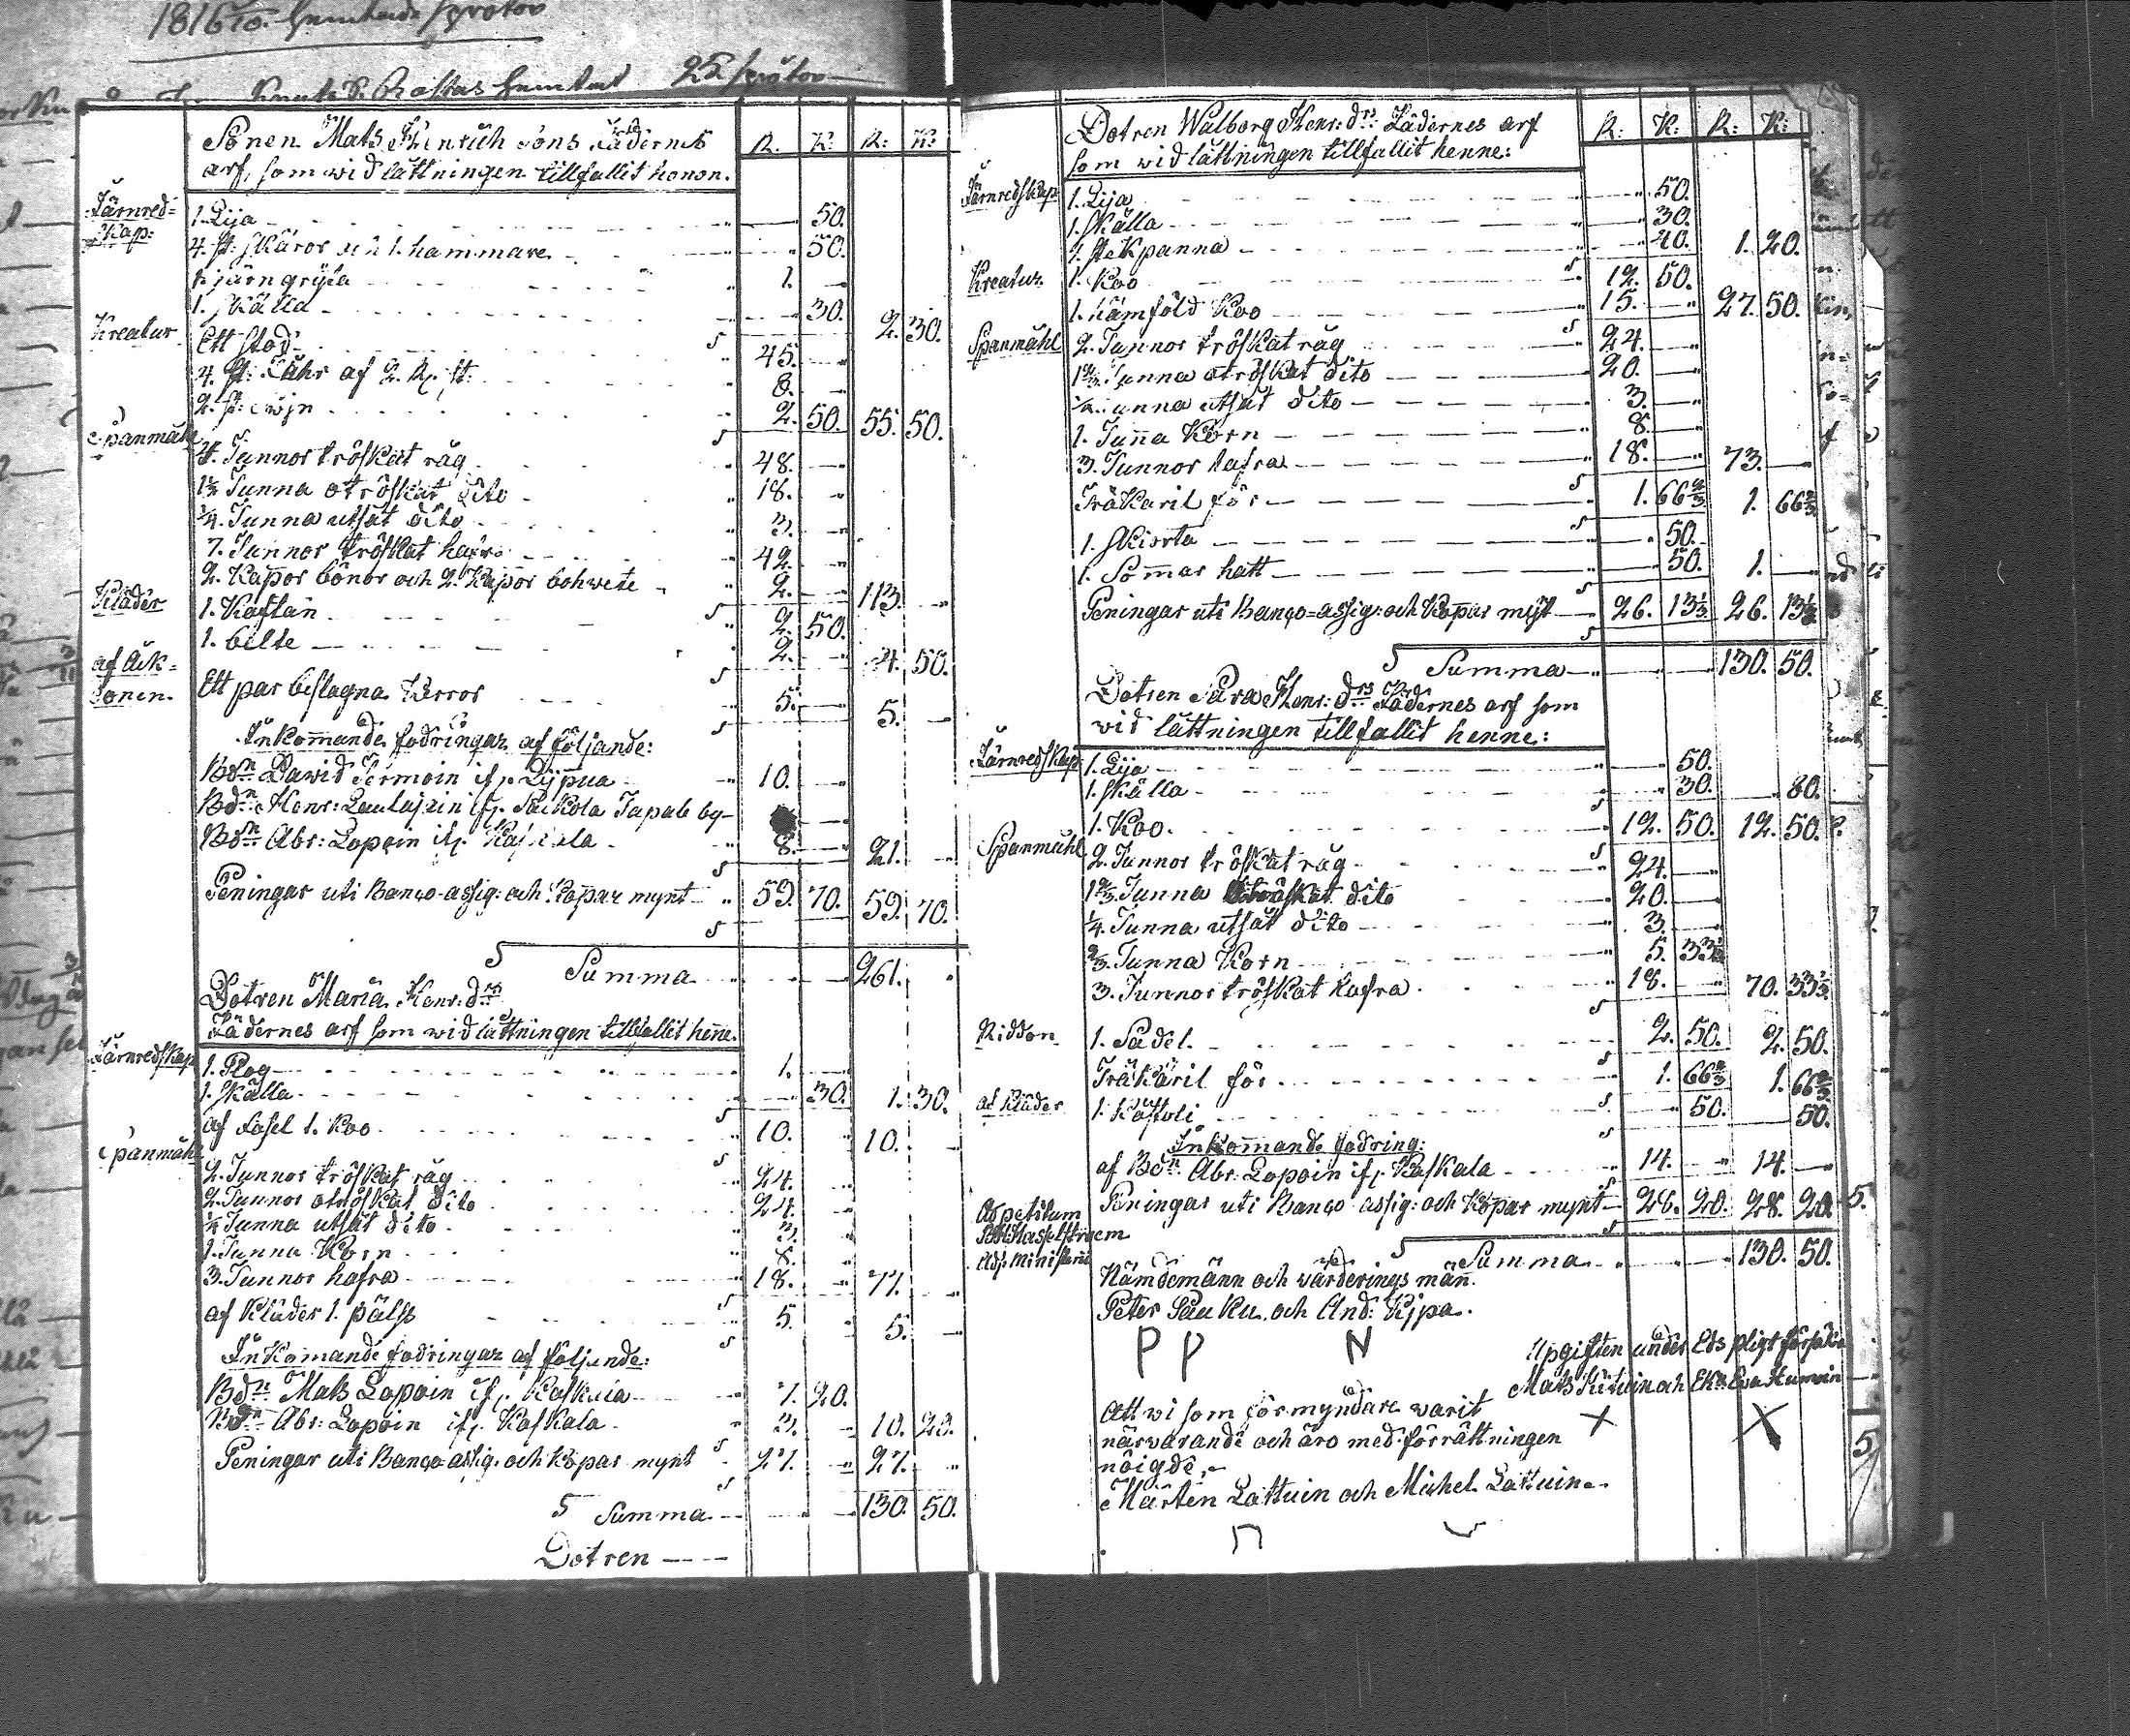 Sonen Mats Hinrich sons Fädernes R: K: R: K:
arf, som wid lättningen tillfallit honon.
Järnred=
skap: 1. Lija — 50.
4. st: skäror och 1. hammare — 50.
1. järn gryta 1. —
1. skälla — 30. 2. 30.
Kreatur Ett stod 45. —
4. st: Fåhr af 2. R. st: 8. —
2. st: swjn 2. 50. 55. 50.
Spanmåhl 4. Tunnor tröskat råg 48. —
1½ Tunna otröskat dito 18. —
¼. Tunna utsåt dito 3. —
7. Tunnor tröskat hafra 42. —
2. Kappor bönor och 2. Kapor bohwete 2. — 113. —
Kläder 1. Kaftan 2. 50.
1. belte 2. — 4. 50.
af Åk=
donen. Ett par beslagna Kärror 5. — 5. —
Inkommande fodringar af följande:
Bdn David Termoin if. Lijpua 10. —
Bdn Henr: Laulajain if. Saukola Tapale by —
Bdn Abr: Lopoin if. Kaskala 8. — 21. —
Peningar uti Banco-assig: och Kopar mynt 59. 70. 59. 70.
S Summa 261. —
Dotren Maria Henr: drs
Fädernes arf som wid lättningen tillfallit henne.
Järnredskap 1. Plog 1. —
1. skälla — 30. 1. 30.
af Fasel 1. Koo 10. — 10. —
Spanmåhl 2. Tunnor tröskat råg 24. —
2. Tunnor otröskat dito 24. —
¼ Tunna utsåt dito 3. —
1. Tunna Korn 8. —
3. Tunnor hafra 18. — 77. —
af Kläder 1. pälss 5. — 5. —
Inkomande fodringar af följande:
Bdn Mats Lopoin if. Kaskala 7. 20.
Bdn Abr: Lopoin if. Kaskala 3. — 10. 20.
Peningar uti Banco-assig. och Kopar mynt 27. — 27. —
S Summa 130. 50.
Dotren —
Dotren Walborg Henr: drs Fädernes arf R: K: R: K:
som wid lättningen tillfallit henne:
Järnredskap 1. Lija — 50.
1. skälla — 30.
1. stekpanna — 40. 1. 20.
Kreatur 1. Koo 12. 50.
1. Kämföld Koo 15. — 27. 50.
Spanmåhl 2. Tunnor tröskat råg 24. —
1⅔ Tunna otröskat dito 20. —
¼ Tunna utsåt dito 3. —
1. Tunna Korn 8. —
3. Tunnor hafra 18. — 73. —
Träkäril för 1. 66⅔ 1. 66⅔
1. skiorta — 50.
1. Sommar hatt — 50. 1. —
Peningar uti Banco-assig: och Koppar mijt 26. 13⅓ 26. 13⅓
S Summa 130. 50.
Dotren Sara Henr: drs Fädernes arf som
wid lättningen tillfallit henne:
Järnredskap 1. Lija — 50.
1. skälla — 30. — 80.
1. Koo. 12. 50. 12. 50.
Spanmåhl 2. Tunnor tröskat råg 24. —
1⅔. Tunna otröskat dito 20. —
¼. Tunna utsåt dito 3. —
⅔. Tunna Korn 5. 33⅓
3. Tunnor tröskat hafra 18. — 70. 33⅓
Riddon 1. Sadel. 2. 50. 2. 50.
Träkäril för 1. 66⅔ 1. 66⅔
af Kläder 1. Kåstoli — 50. — 50.
Inkommande fodring:
af Bdn Abr: Lopoin if. Kaskala 14. — 14. —
Peningar uti Banco assig: och Kopar mynt 28. 20. 28. 20.
S Summa 130. 50.
Ad petitum
Adj. Ministerii
Nämdemänn och wärderings män.
Peter Pauku och And: Kijpa.
P P N
Upgiften under Eds pligt försäkra
X X
Att wi som förmyndare warit
närwarande och äro med förrättningen
nöigde,
Mårten Lattuin och Michel Lattuin.